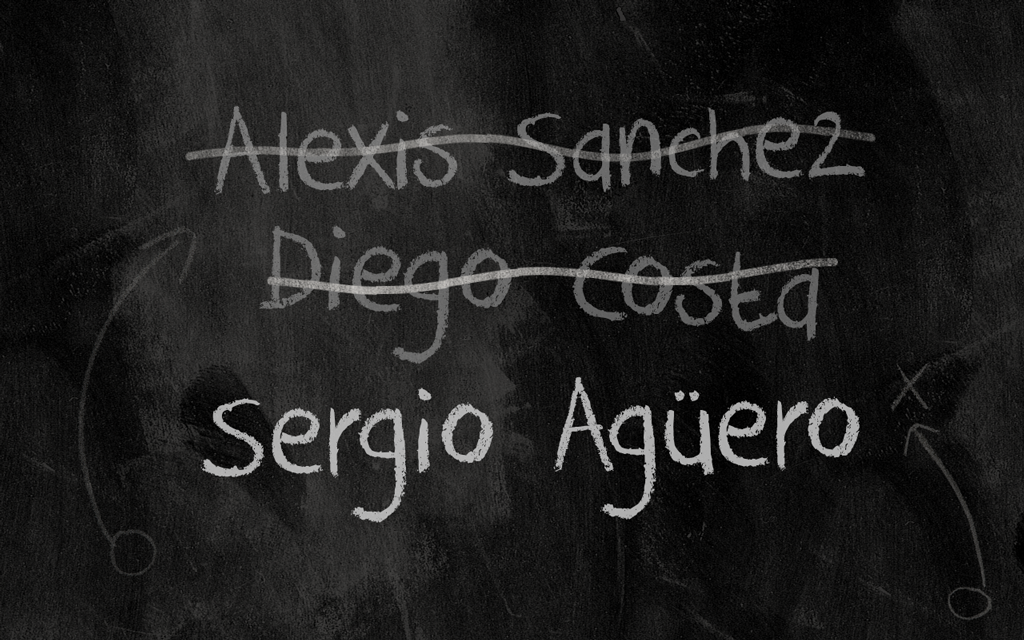 Alexis Sanchez
Diego Costa
Sergio Agüero